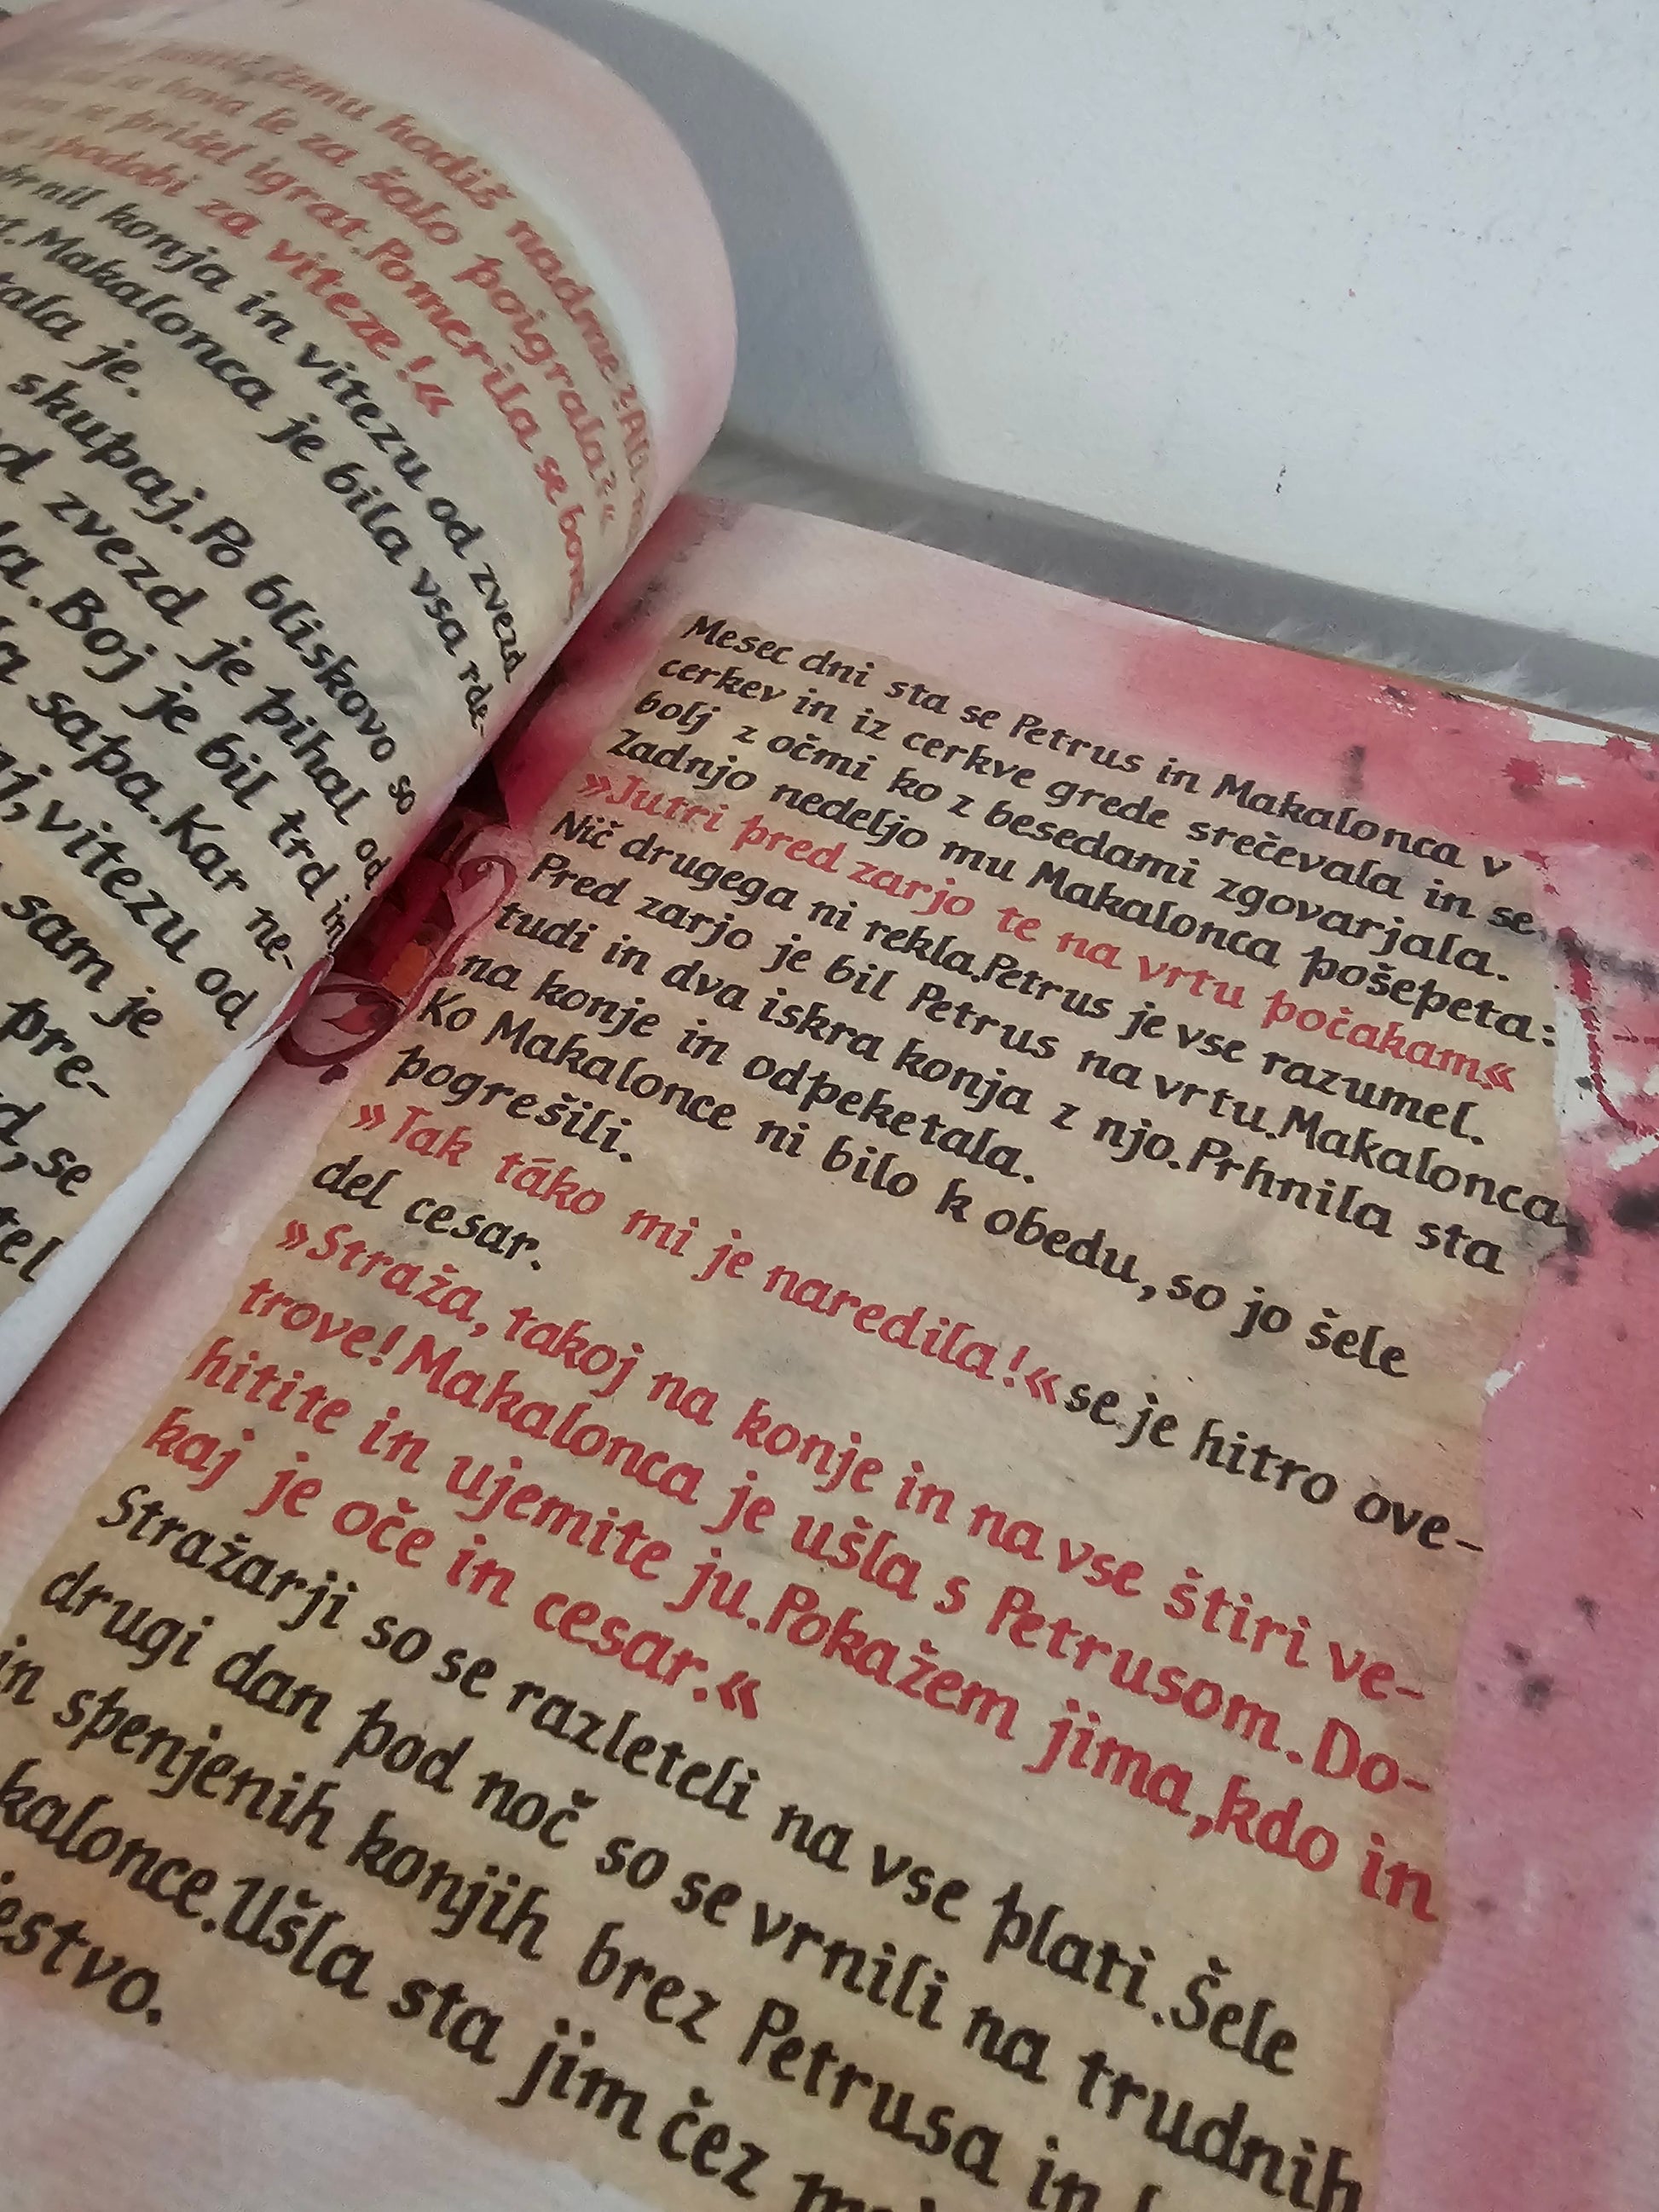 čemu hodiš nadme?Ali
se bova le za šalo poigrala?«
se prišel igrat.Pomerila se bova,
spodobi za viteze!«
konja in vitezu od zvezd
Makalonca je bila vsa rde-
je.
skupaj.Po bliskovo so
zvezd je pihal od
Boj je bil trd in
sapa.Kar ne-
vitezu od
sam je
pre-
se
Mesec dni sta se Petrus in Makalonca v
cerkev in iz cerkve grede srečevala in se
bolj z očmi ko z besedami zgovarjala.
Zadnjo nedeljo mu Makalonca pošepeta:
»Jutri pred zarjo te na vrtu počakam«
Nič drugega ni rekla.Petrus je vse razumel.
Pred zarjo je bil Petrus na vrtu.Makalonca
tudi in dva iskra konja z njo.Prhnila sta
na konje in odpeketala.
Ko Makalonce ni bilo k obedu,so jo šele
pogrešili.
»Tak táko mi je naredila!«se je hitro ove-
del cesar.
»Straža, takoj na konje in na vse štiri ve-
trove! Makalonca je ušla s Petrusom.Do-
hitite in ujemite ju.Pokažem jima,kdo in
kaj je oče in cesar.«
Stražarji so se razleteli na vse plati.Šele
drugi dan pod noč so se vrnili na trudnih
in spenjenih konjih brez Petrusa in
kalonce.Ušla sta jim čez